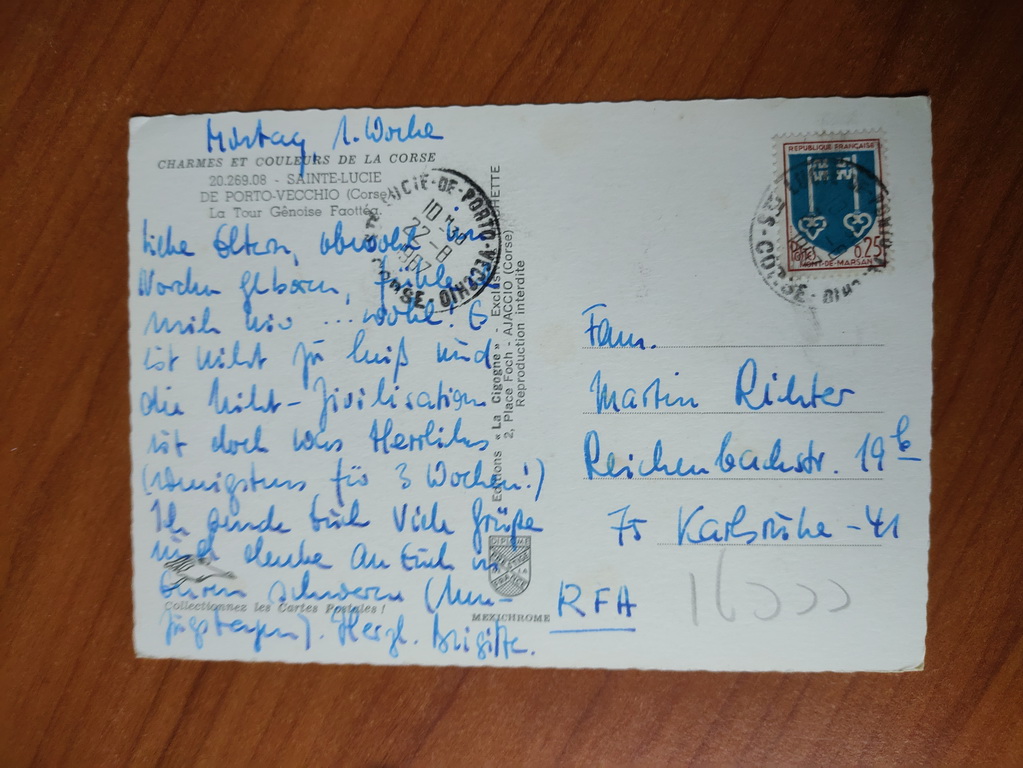 Montag, 1. Woche
CHARMES ET COULEURS DE LA CORSE
20.269.08 - SAINTE-LUCIE
DE PORTO-VECCHIO (Corse)
La Tour Génoise Faottéa.
Liebe Eltern, obwohl im
Norden geboren, fühle
mich hier ... wohl! Es
ist nicht zu heiß und
die Nicht-Zivilisation
ist doch was Herrliches
(wenigstens für 3 Wochen!)
Ich sende Euch viele Grüße
und denke an Euch in
Euren schweren
Herzl. Brigitte.
Collectionnez les Cartes Postales !
Editions « La Cigogne » - HACHETTE
2, Place Foch - AJACCIO (Corse)
Reproduction interdite
MEXICHROME
STE LUCIE-DE-PORTO-VECCHIO
10 H 30
22-8
1967
CORSE
REPUBLIQUE FRANÇAISE
0,25
MONT-DE-MARSAN
Fam.
Martin Richter
Reichenbachstr. 19b
75 Karlsruhe-41
RFA